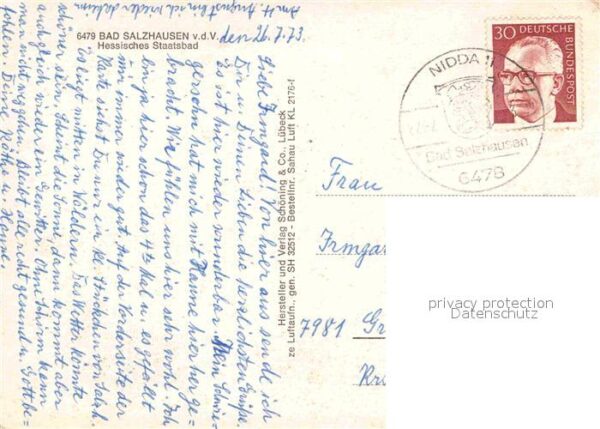 Am 4. August bin ich wieder daheim
6479 BAD SALZHAUSEN v.d.V.
Hessisches Staatsbad
den 26.7.73.
Liebe Irmgard! Von hier aus sende ich
Dir u. Deinen Lieben die herzlichsten Grüße.
Es ist hier wieder wunderbar. Mein Schwie-
gersohn hat mich mit Hanne hier her ge-
bracht. Wir fühlen uns hier sehr wohl. Ich
bin ja hier schon das 4te Mal u. es gefällt
mir immer wieder gut. Auf der Vorderseite der
Karte siehst Du nur ein kl. Stückchen von Salzh.
Es liegt mitten in Wäldern. Das Wetter könnte
schöner sein. Scheint die Sonne, dann kommt aber
auch gleich wieder ein Gewitter. Ohne Schirm kann
man nicht weggehen. Bleibt alle recht gesund u. Gott be-
fohlen. Deine Käthe u. Hanne
Hersteller und Verlag Schöning & Co., Lübeck
ze Luftaufn., gen. SH 32512 - Bestellnr. Sahau Luft KL 2176-f
30 DEUTSCHE
BUNDESPOST
NIDDA 1
Bad Salzhausen
6478
Frau
Irmgar
7981 Gr
Kr
privacy protection
Datenschutz